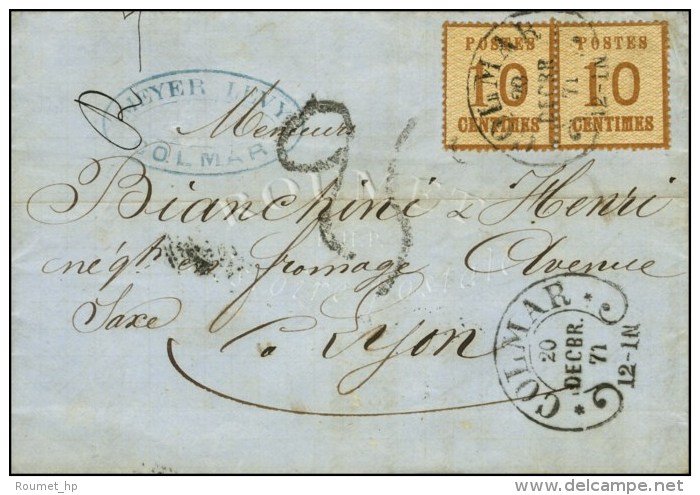 POSTES
10
CENTIMES
POSTES
10
CENTIMES
COLMAR
20
DECBR.
71
12-1N
MEYER LEVY
COLMAR
Messieurs
Bianchini & Henri
négts en fromage Avenue
Saxe
à Lyon
COLMAR
20
DECBR.
71
12-1N
Roumet_hp
delcampe.net